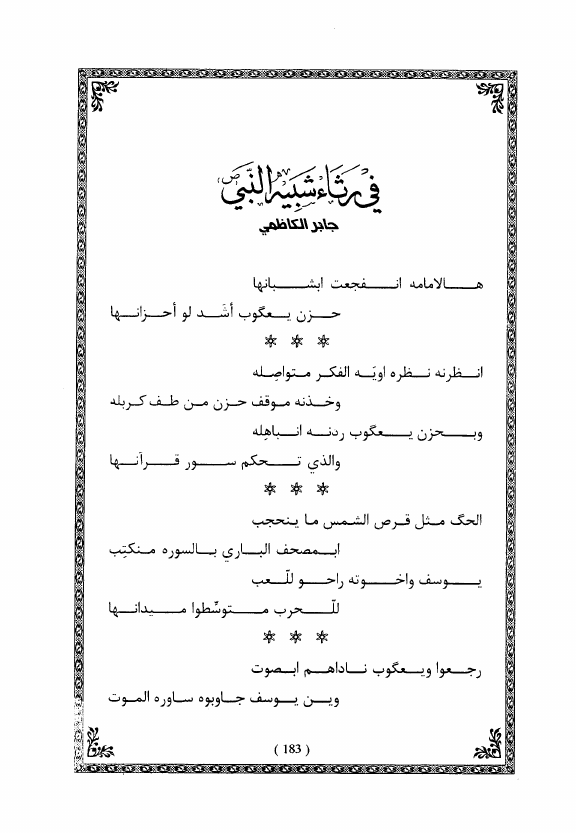 في رثاء شبيه النبي (ص)
جابر الكاظمي
هـالامامه انـفجعت ابشـبانها
حـزن يـعگوب أشـد لو أحـزانـها
* * *
انـظرنه نـظره اويَـه الفكـر متواصِله
وخـذنه موقف حـزن مـن طـف كـربله
وبـحزن يـعگوب ردنـه انـباهِله
والذي تـحكم سـور قـرآنـها
* * *
الحگ مـثل قـرص الشمس ما ينحجب
ابـمصحف البـاري بـالسوره مـنكتِب
يـوسف واخـوته راحـو للّعب
للّـحرب مـتوسِّطوا مـيدانـها
* * *
رجـعوا ويـعگوب نـاداهـم ابصوت
ويـن يـوسف جـاوبوه ساوره الموت
( 183 )